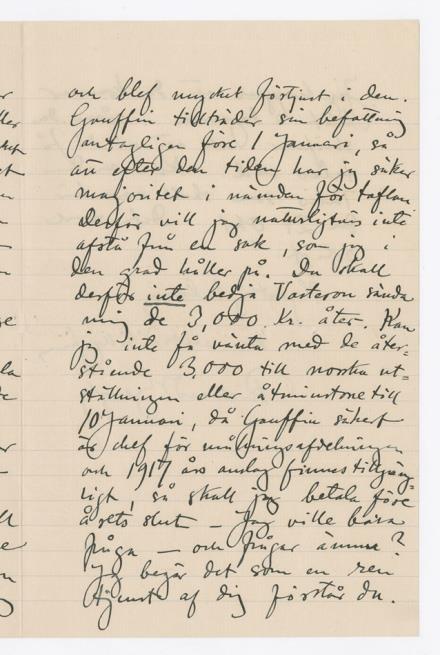 och blef mycket förtjust i den.
Gauffin tillträder sin befattning
antagligen före 1 Januari, så
att efter den tiden har jag säker
majoritet i nämnden för taflan
Derför vill jag naturligtvis inte
afstå från en sak, som jag i
den grad håller på. Du skall
derför inte bedja Vasteron sända
mig de 3,000 Kr. åter. Kan
jag inte få vänta med de åter-
stående 3.000 till norska ut-
ställningen eller åtminstone till
10 Januari, då Gauffin säkert
är chef för målningsafdelningen
och 1917 års anslag finnes tillgäng-
ligt, så skall jag betala före
årets slut — Jag ville bara
fråga — och frågar ännu?
Jag begär det som en ren
tjenst af dig förstår du.